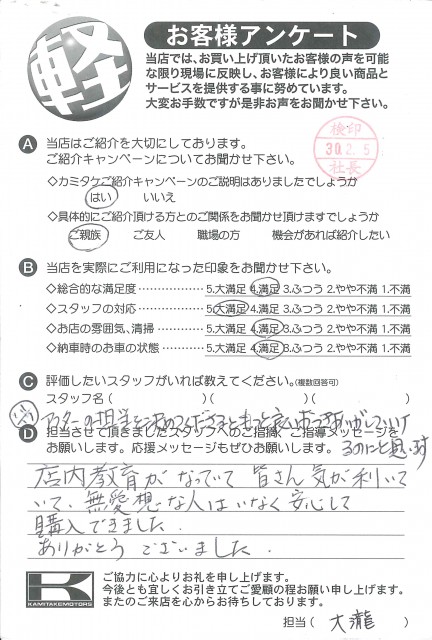 軽
お客様アンケート
当店では、お買い上げ頂いたお客様の声を可能
な限り現場に反映し、お客様により良い商品と
サービスを提供する事に努めています。
大変お手数ですが是非お声をお聞かせ下さい。
検印
30.2.5
社長
A 当店はご紹介を大切にしております。
ご紹介キャンペーンについてお聞かせ下さい。
◇カミタケご紹介キャンペーンのご説明はありましたでしょうか
はい いいえ
◇具体的にご紹介頂ける方とのご関係をお聞かせ頂けますでしょうか
ご親族 ご友人 職場の方 機会があれば紹介したい
B 当店を実際にご利用になった印象をお聞かせ下さい。
◇総合的な満足度 5.大満足 4.満足 3.ふつう 2.やや不満 1.不満
◇スタッフの対応 5.大満足 4.満足 3.ふつう 2.やや不満 1.不満
◇お店の雰囲気、清掃 5.大満足 4.満足 3.ふつう 2.やや不満 1.不満
◇納車時のお車の状態 5.大満足 4.満足 3.ふつう 2.やや不満 1.不満
C 評価したいスタッフがいれば教えてください。(複数回答可)
スタッフ名( )( )( )
アフターの担当を決めてくださるともっと良いおつきあいがしていけ
るのにと思います
D 担当させて頂きましたスタッフへのご指摘、ご指導メッセージを
お願いします。応援メッセージもぜひお願いします。
店内教育がなっていて皆さん気が利いて
いて、無愛想な人はいなく安心して
購入できました.
ありがとうございました.
K
KAMITAKEMOTORS
ご協力に心よりお礼を申し上げます。
今後とも宜しくお引き立てご愛顧の程お願い申し上げます。
またのご来店を心からお待ちしております。
担当( 大瀧 )